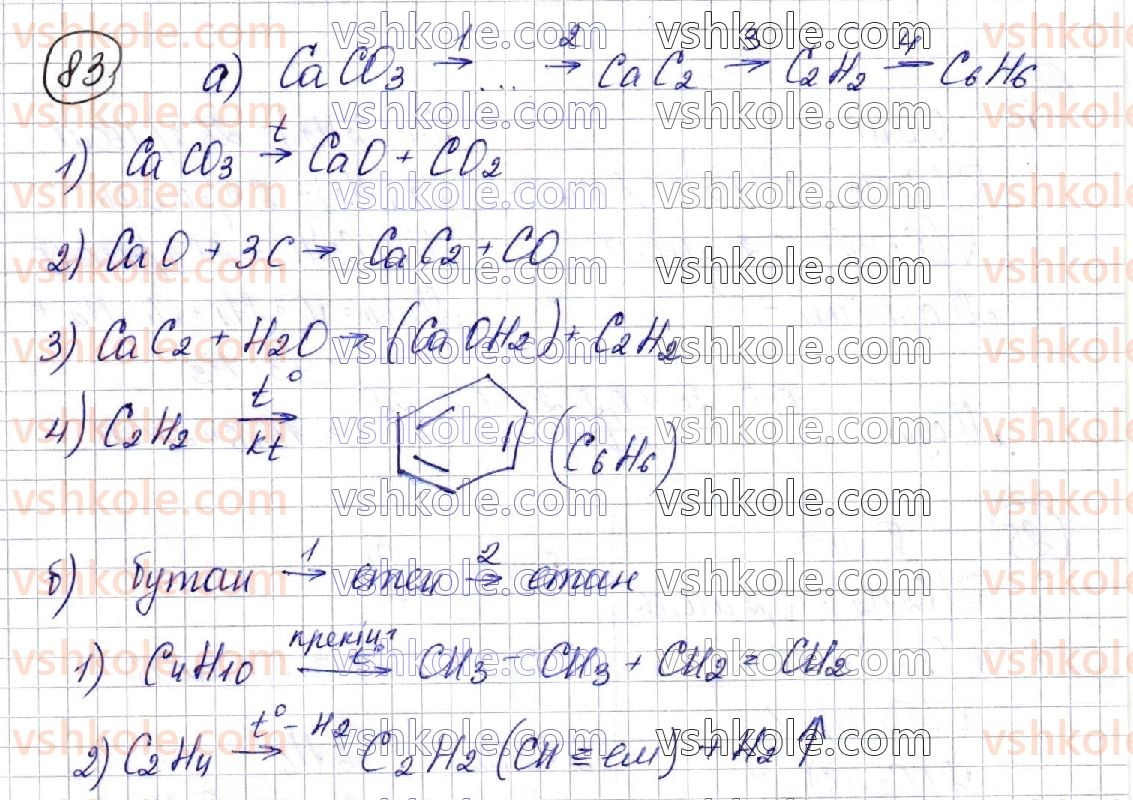 83 а) CaCO3 1→ ... 2→ CaC2 3→ C2H2 4→ C6H6
1) CaCO3 t→ CaO + CO2
2) CaO + 3C → CaC2 + CO
3) CaC2 + H2O → (CaOH2) + C2H2
4) C2H2 t°→ kt (C6H6)
б) бутан 1→ етен 2→ етан
1) C4H10 t°→ CH3 - CH3 + CH2 = CH2
2) C2H4 t° - H2→ C2H2 (CH ≡ ем) + H2↑
vshkole.com